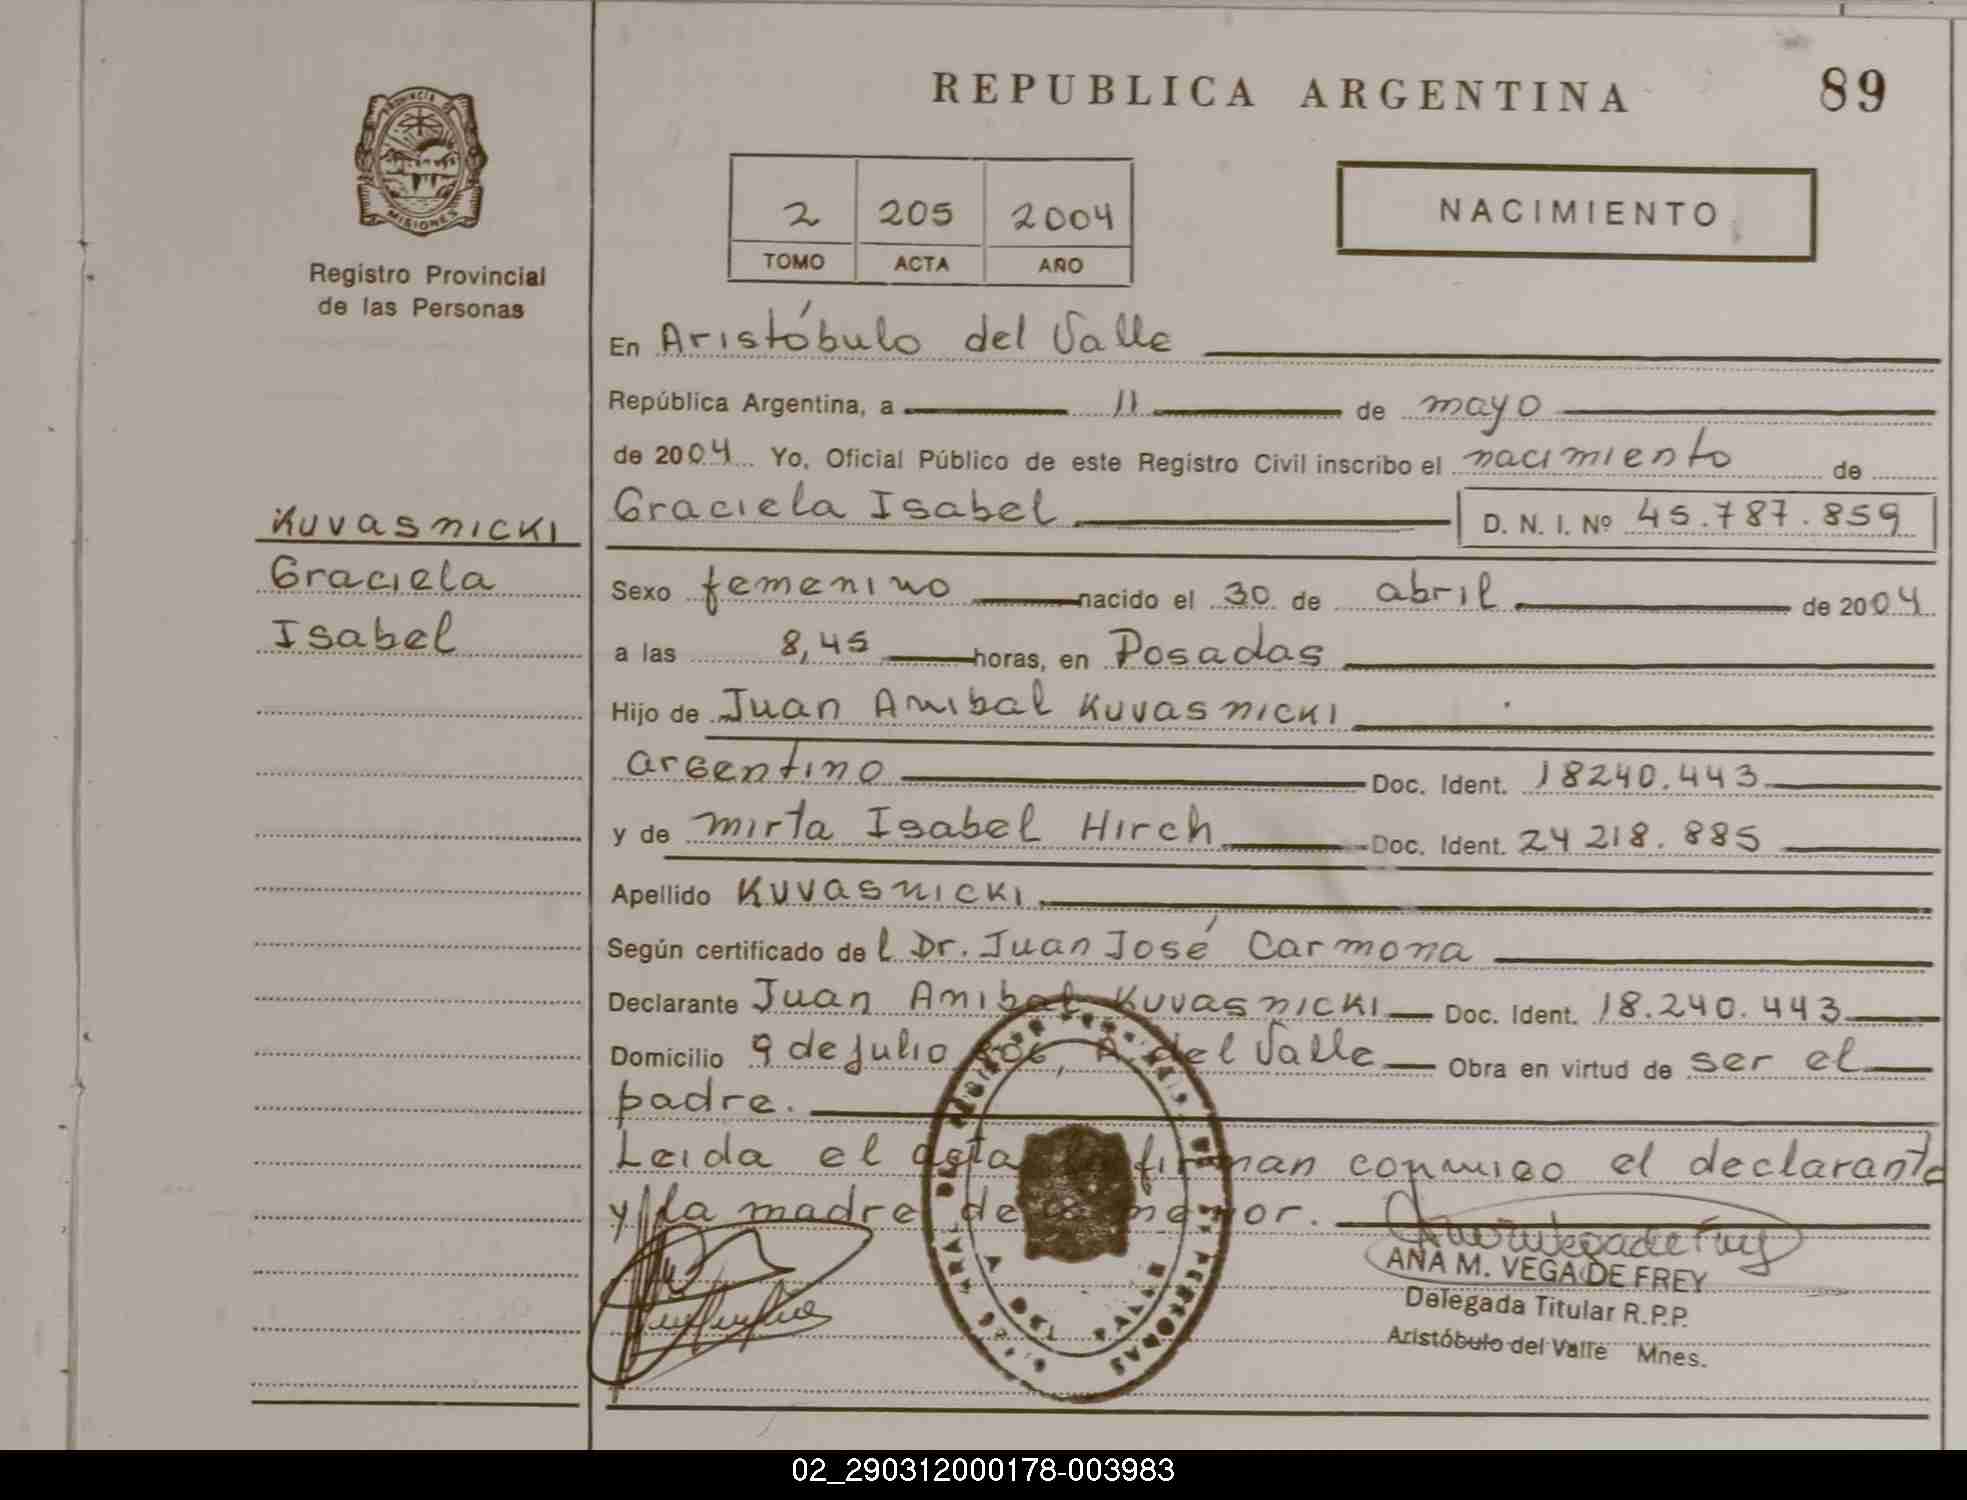 PROVINCIA DE
MISIONES
Registro Provincial
de las Personas
KUVASNICKI
Graciela
Isabel
REPUBLICA ARGENTINA
89
2 205 2004
TOMO ACTA AÑO
NACIMIENTO
En Aristóbulo del Valle
República Argentina, a 11 de mayo
de 2004 Yo, Oficial Público de este Registro Civil inscribo el nacimiento de
Graciela Isabel D. N. I. Nº 45.787.859
Sexo femenino nacido el 30 de abril de 2004
a las 8,45 horas, en Posadas
Hijo de Juan Anibal Kuvasnicki
argentino Doc. Ident. 18240.443
y de Mirta Isabel Hirch Doc. Ident. 24 218.885
Apellido KUVASNICKI
Según certificado del Dr. Juan José Carmona
Declarante Juan Anibal Kuvasnicki Doc. Ident. 18.240.443
Domicilio 9 de Julio A. del Valle Obra en virtud de ser el
padre.
Leida el acta firman conmigo el declarante
y la madre de menor.
ANA M. VEGA DE FREY
Delegada Titular R.P.P.
Aristóbulo del Valle Mnes.
02_290312000178-003983